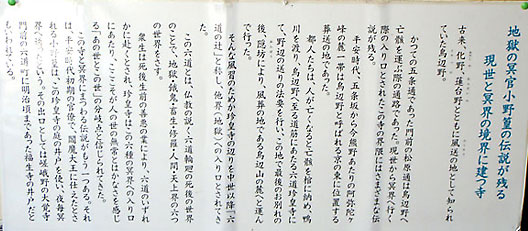 地獄の冥官小野篁の伝説が残る
現世と冥界の境界に建つ寺
古来、化野、蓮台野とともに風送の地として知られ
ていた鳥辺野。
かつての五条通であった門前の松原通は鳥辺野へ
亡骸を運ぶ際の通路であった。現世から冥界へ行く
際の入り口とされたこの寺の界隈にはさまざまな伝
説が残る。
平安時代、五条坂から今熊野あたりの阿弥陀ヶ
峰の麓一帯は鳥辺野と呼ばれる京の東に位置する
葬送の地であった。
都人たちは、人が亡くなると亡骸を棺に納め、鴨
川を渡り、鳥辺野へ至る道筋にあたる六道珍皇寺に
て、野辺の送りの法要を行い、この地で最後のお別れの
後、隠坊により、風葬の地である鳥辺山の麓へと運ん
で行った。
そんな風習のためか珍皇寺の辺りを中世以降「六
道の辻」と称し、他界（地獄）への入り口とされてき
た。
この六道とは、仏教の説く六道輪廻の死後の世界
のことで、地獄・餓鬼・畜生・修羅・人間・天上界の六つ
の世界をさす。
衆生は死後生前の善悪の業により、六道のいずれ
かに赴くとされ、珍皇寺はこの六種の冥界への入り口
にあたり、ここそが人の世の無常とはかなさを感じ
る「あの世とこの世」の分岐点と信じられてきた。
この寺と冥界にまつわる伝説がもう一つある。それ
は、平安時代初期の官僚で、閻魔大王に仕えたとさ
れる小野篁は、この珍皇寺の庭の井戸を使い、夜毎冥
界へ通ったという。その出口としては嵯峨野の大覚寺
門前の六道町に明治頃まであった福生寺の井戸だと
もいわれている。